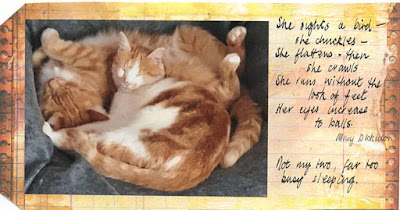 She sights a bird –
she chuckles –
She flattens – then
she crawls
She runs without the
look of feet
Her eyes increase
to balls.
Dickinson
Not my two, far too
busy sleeping.